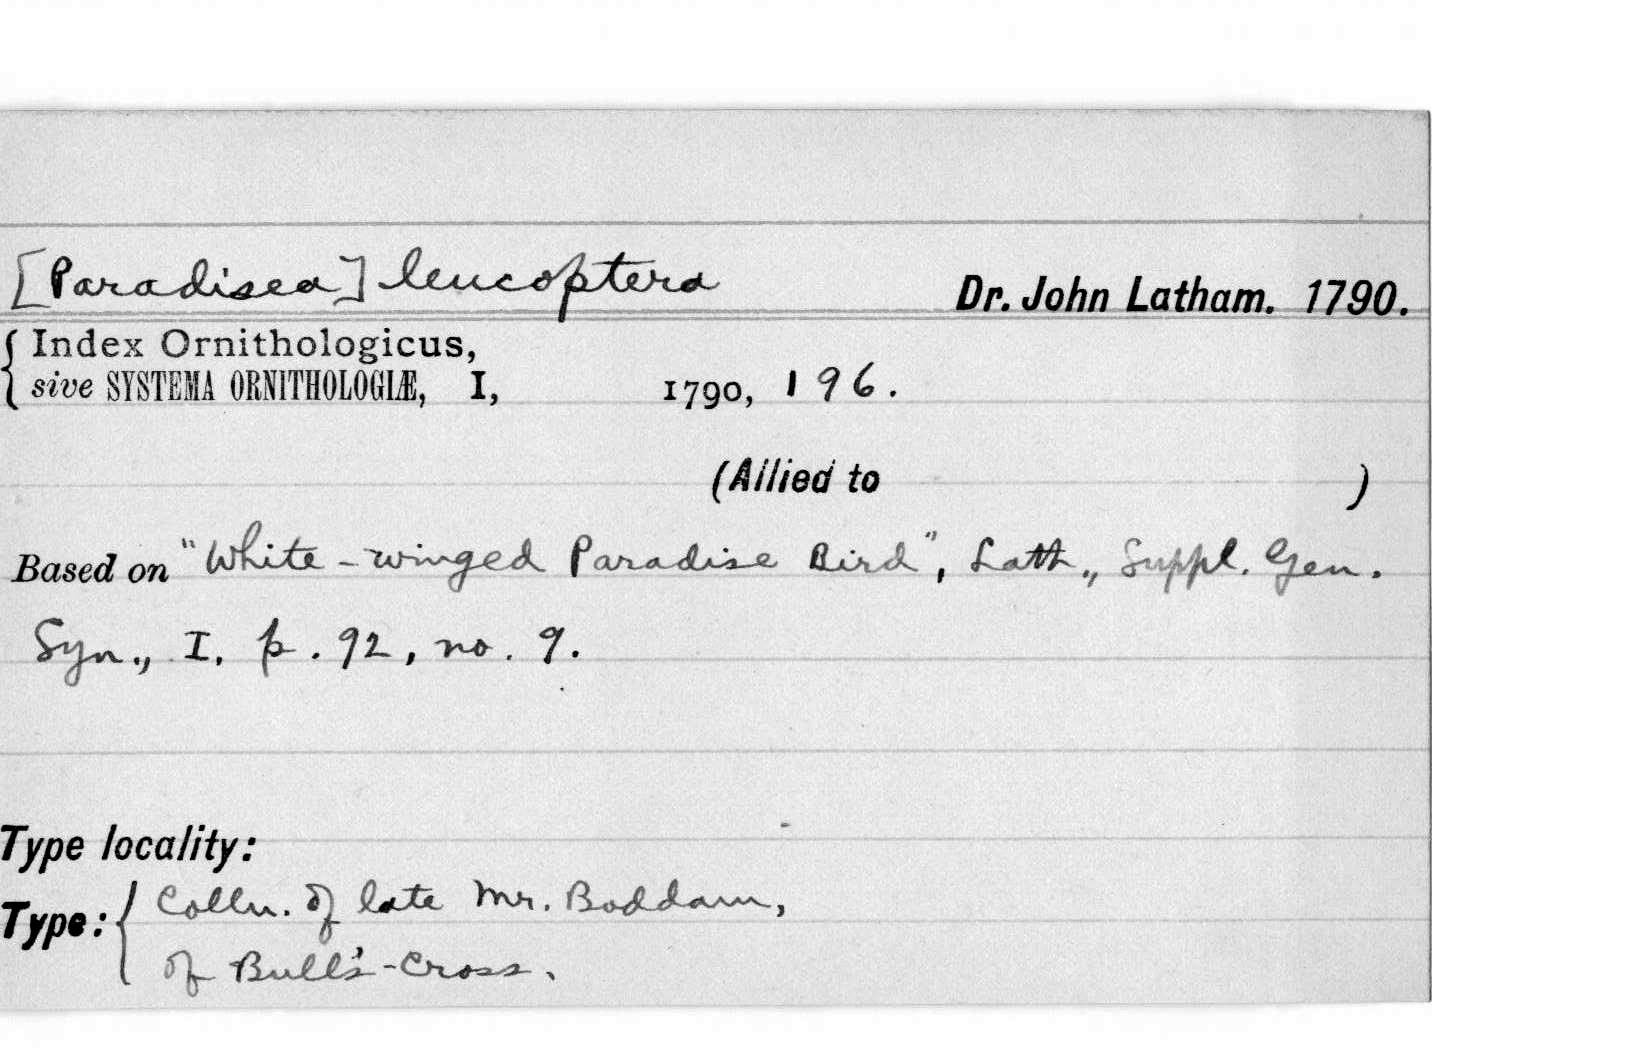 [Paradisea] leucoptera Dr. John Latham. 1790.
Index Ornithologicus,
sive SYSTEMA ORNITHOLOGIÆ, I, 1790, 196.
(Allied to )
Based on "White-winged Paradise Bird", Lath., Suppl. Gen.
Syn., I. p. 92, no. 9.
Type locality:
Type: Colln. of late Mr. Boddam,
of Bull's-Cross.